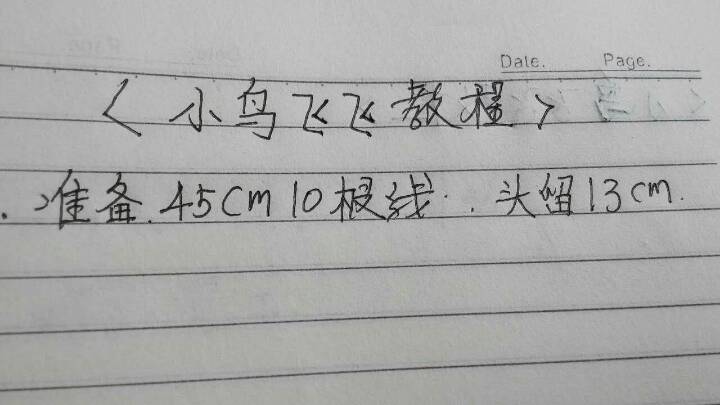 Date. Page.
<小鸟飞飞教程>
.准备.45cm10根线..头留13cm.